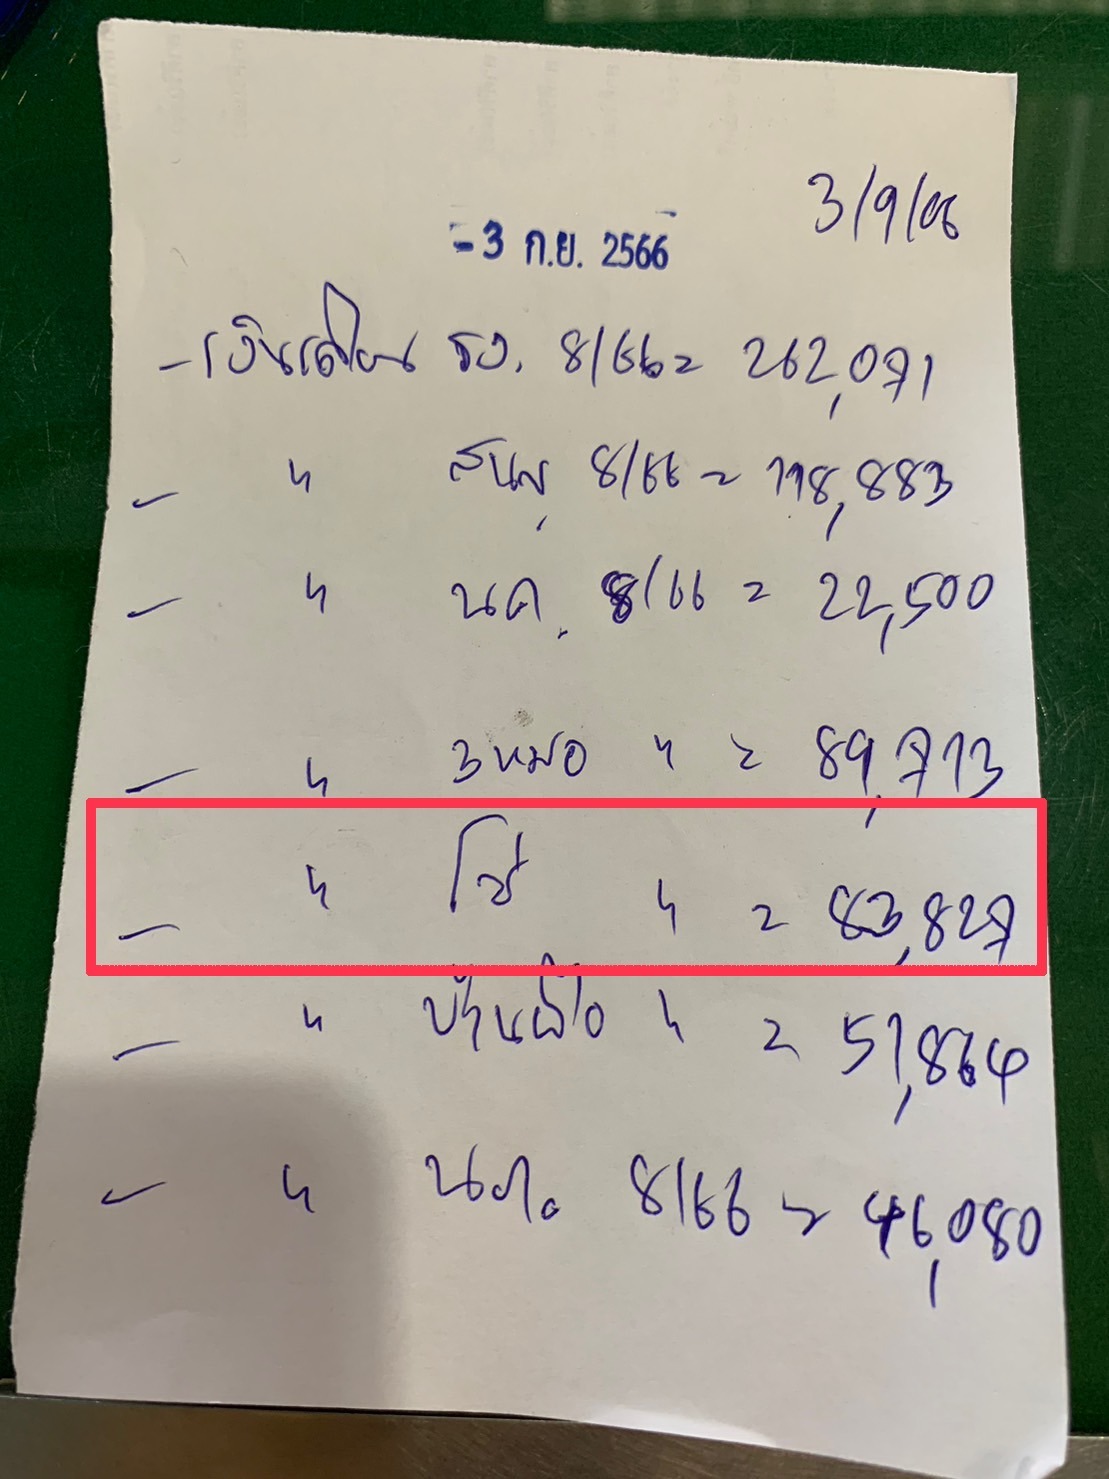 3/9/66
-3 ก.ย. 2566
- เงินเดือน รง. 8/66 = 262,071
- " สนญ. 8/66 = 118,883
- " นค. 8/66 = 22,500
- " 3หมอ " = 89,713
- " โซ่ " = 83,827
- " บ้านผือ " = 51,864
- " 8/66 = 46,080